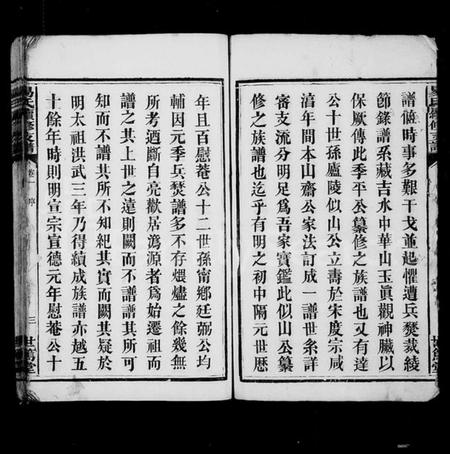 譜僚時事多艱干戈並起懼遭兵燹裁綾
節錄譜系藏吉水中華山玉眞觀神臟以
保厥傳此季平公纂修之族譜也又有達
公十世孫廬陵似山公立壽於宋度宗咸
淳年間本山齋公家法訂成一譜世系詳
審支流分明足爲吾家寶鑑此似山公纂
修之族譜也迄乎有明之初中隔元世歷
年且百慰菴公十二世孫甯鄉廷弼公均
輔因元季兵燹譜多不存煨燼之餘幾無
所考迺斷自亮歡居溈源者爲始遷祖而
譜之其上世之遠則闕而不譜譜其所可
知而不譜其所不知紀其實而闕其疑於
明太祖洪武三年乃得續成族譜亦越五
十餘年時則明宣宗宣德元年慰菴公十
易氏續修支譜
卷一 序
三
世篤堂